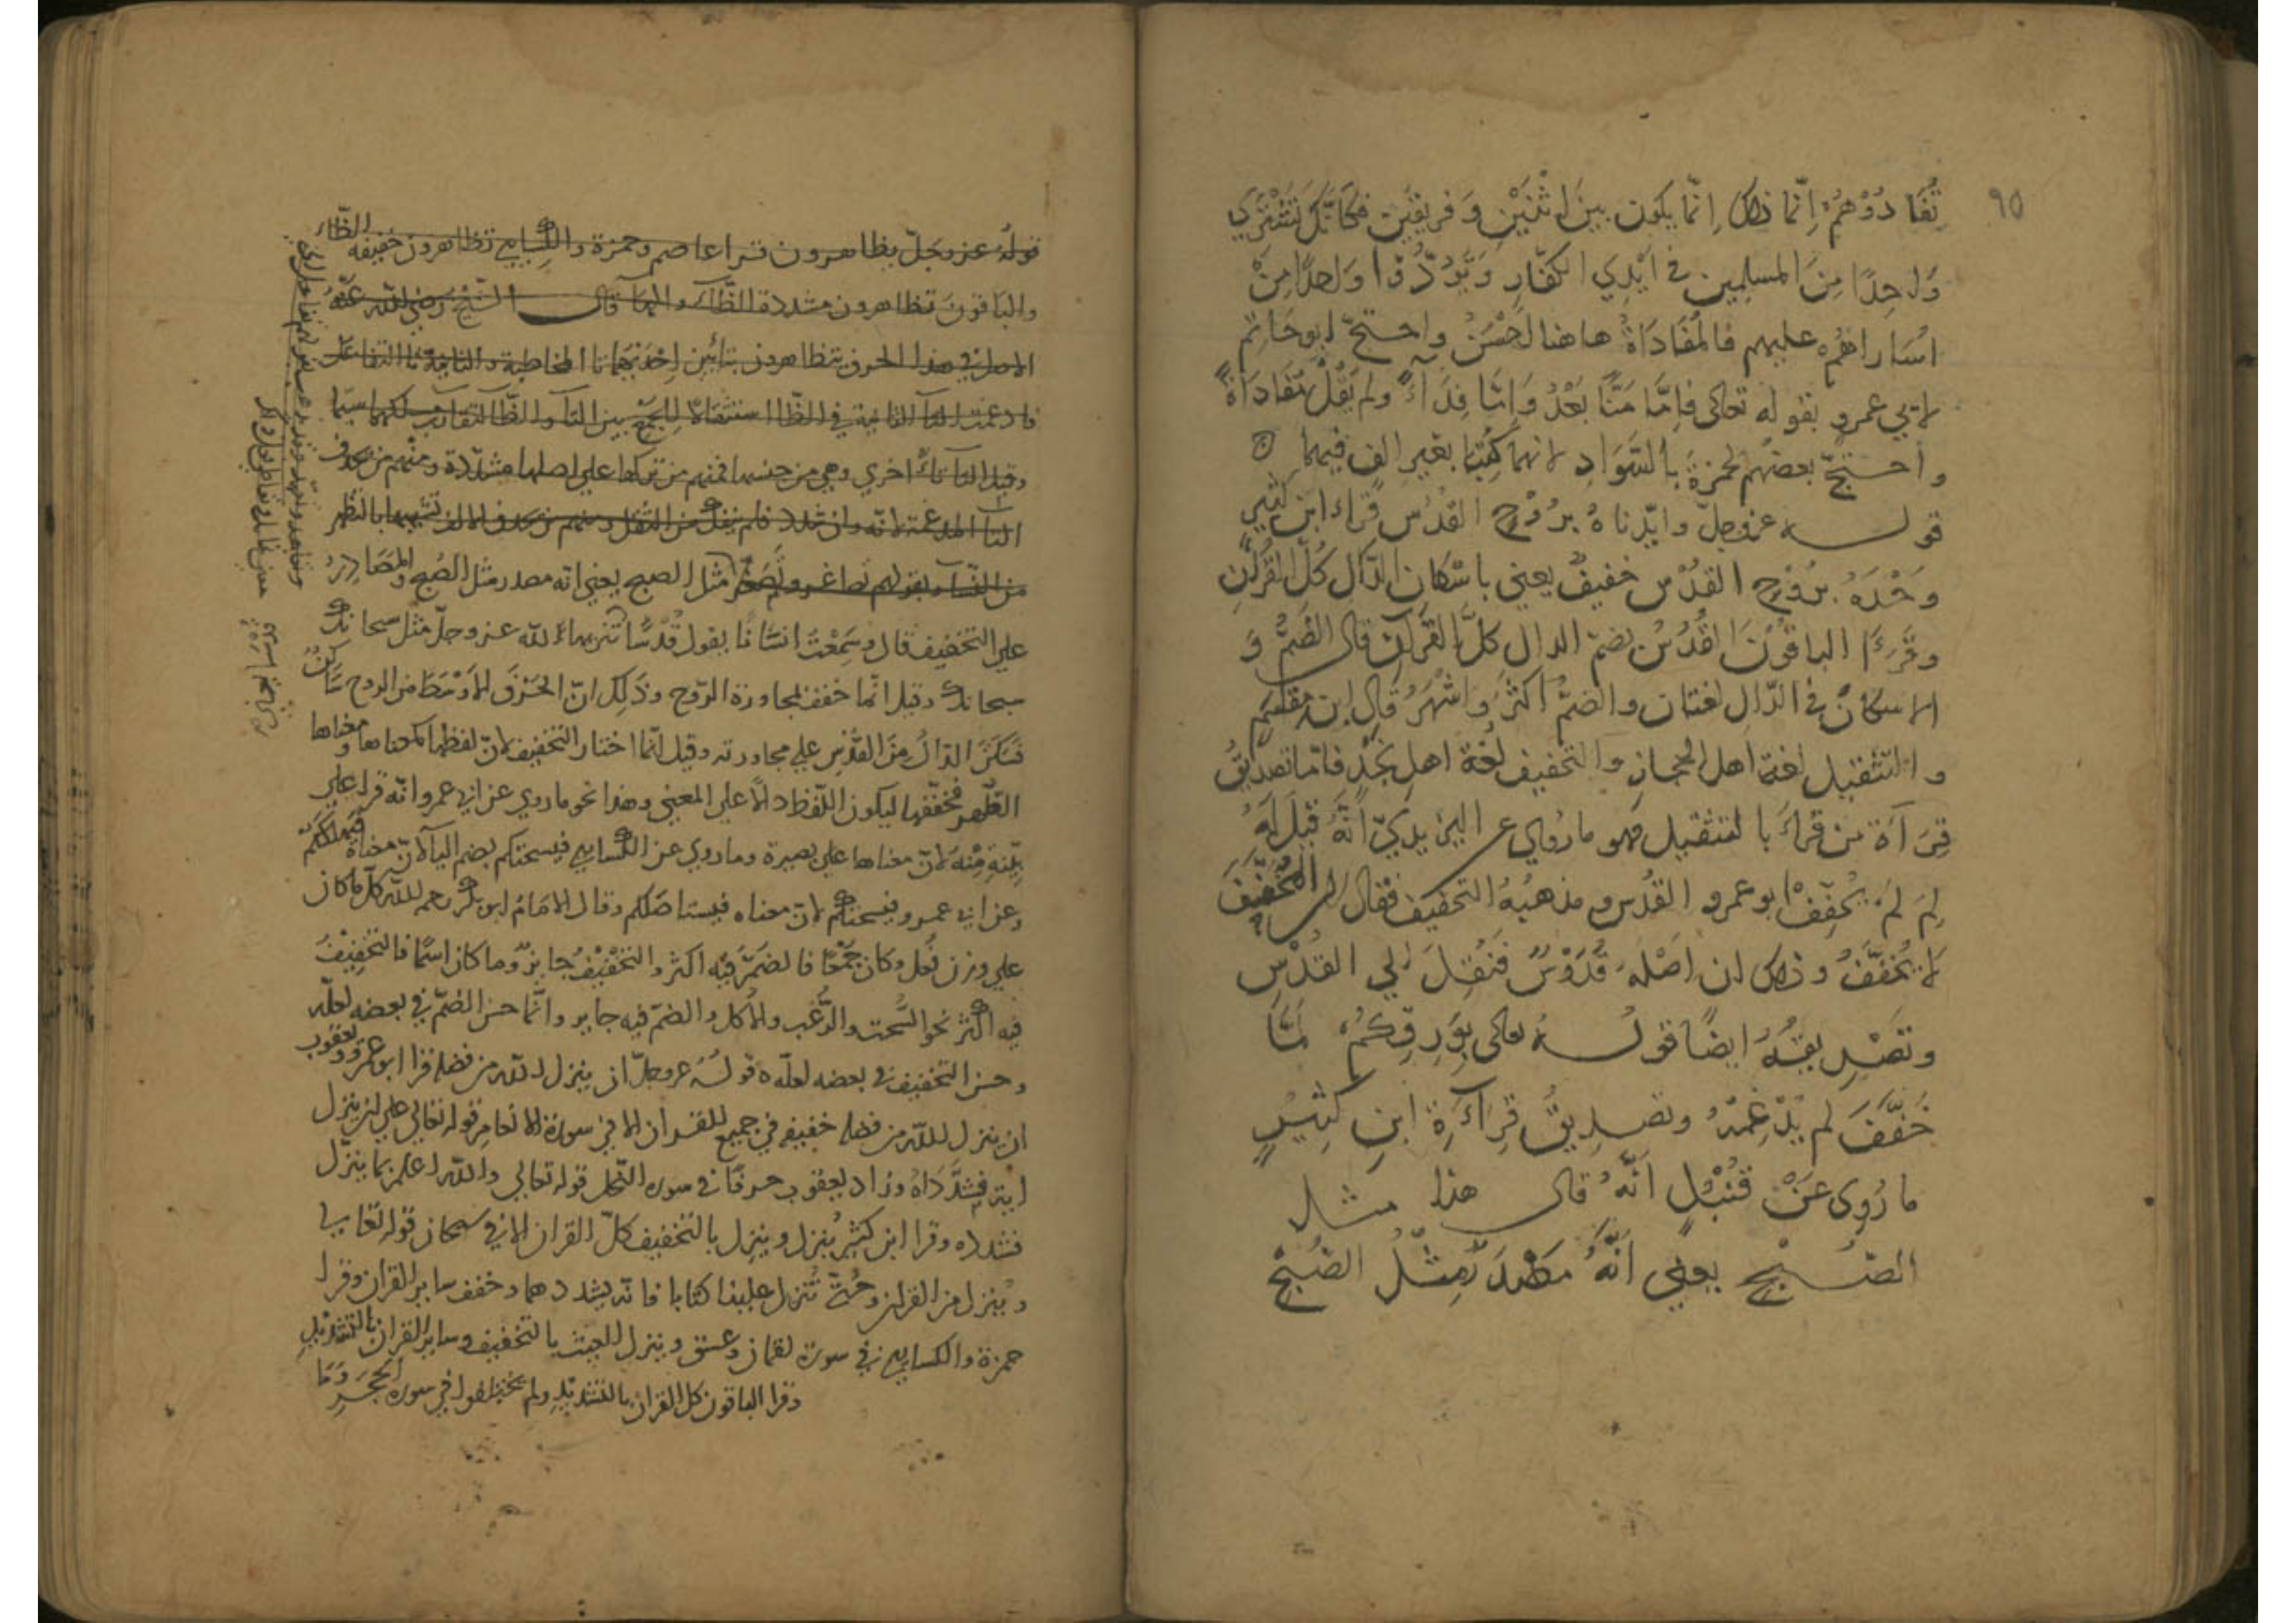 ٩٥
تُفَادُوْهُمْ اِنّما ذلك اِنّما يكون بينَ اثْنَيْنِ وَفريقَيْنِ فكَانّكَ تَشْتَرِي
وَاحِدًا مِنَ المسلِمين في اَيْدِي الكفّارِ وَتَرُدُّوْا وَاحِدًا مِنْ
اُسَاراهُمْ عليهم فالمُفَادَاةُ هاهنا اَحْسَنُ واحتجّ ابوحَاتِم
لابي عمرو بقوله تعالى فاِمَّا مَنًّا بَعْدُ وَاِمّا فِدَاءً ولم يَقُلْ مُفَادَاةً
واحتجّ بعضُهم لحمزةَ بالسَّوَادِ لانهما كُتِبَا بغيرِ الفٍ فيهما ه
قوله عزوجلّ وايّدناهُ برُوْحِ القدُس قَرَاءَ ابن كثيرٍ
وَحْدَهُ برُوْحِ القدْس خفيفٌ يعني باسْكان الدّال كُلَّ القرآنِ
وقَرَءَا الباقُوْنَ القُدُس بضمّ الدال كلَّ القرآن قال الضَمُّ وَ
الاسكانُ في الدّال لغتان والضمُّ اكثَرُ وَاشْهَرُ قال ابن مقسم
والتثقيل لغة اهل الحجاز والتخفيف لغة اهل نجد فامّا تصديقُ
قِرَآءَة من قَراءَ بالتثقيل فهو ما رُوِي عن اليزيديّ انّهُ قيلَ لهُ
لِمَ لمْ يُخفِّفْ ابو عمرو القدُس ومذهبُهُ التخفيف فقال المخفَّفُ
لا يُخفَّفُ وذلك ان اصْلَهُ قُدّوْسٌ فنُقِلَ اِلي القدُس
وتَصْدِيقُهُ ايضًا قوله تعالى بوَرِقِكُمْ لمّا
خَفَّفَ لم يُدْغِمْهُ وتصديقُ قِرَآءَةِ ابنِ كثيرٍ
ما رُوِى عَنْ قُنْبُلٍ انّهُ قال هذا مثل
الصُبْحِ يعني اَنَّهُ مَصْدَرٌ مِثْلُ الصُبْحِ
قولهُ عزوجَلّ تظاهرون قرا عاصم وحمزة والكِسَايي تظاهرون خفيفه الظاء
والباقونَ تظاهرون مشددة الظّاء والها قال الشيخ رضي الله عنهُ
الاصل في هذا الحرف تتظاهرون بتائين اِحْدٰيهما تا المخاطبة والثانية تا التفاعل
فادغمت التا الثانية في الظّا استثقالا لِلجَمْعِ بين التا والظّا لتقارب لكنهما سيّما
وقبل التا تاءٌ اخري وهي من جنسها فمنهم من تركها علي اصلها مشدّدة ومنهم من حذف
التا المدغمة لانّه وان شدد فلم ينفكّ من الثقل ومنهم من حذف الالف تشبيها بالظهر
من النسآء بقولهم تصاغر وتصعّر مثل الصبح يعني انّه مصدر مثل الصبح والمَصَادِرُ
على التخفيف قال وسَمِعْتُ انسانًا يقول قُدْسًا تنزيهاً لله عزوجلّ مثل سبحانك
سبحانك وقيل انّما خفف لمجاورة الرّوح وذَلِك انّ الحَرْفَ الاَوْسَطَ من الروح سَاكنٌ
فسَكّنَ الدّالَ مِنَ القدُس علي مجاورته وقيل انّما اختار التخفيف لانّ لفظها كمعناها ومعناها
الطّهر فخفّفها ليكون اللّفظ دالًا علي المعني وهذا نحو ما روي عن ابي عمرو انّه قرا علي
بيّنةٍ مِنْهُ لانّ معناها علي بصيرة وما روي عن الكسايي فيسحتكم بضم اليآ لانّ معناه فيهلككم
وعن ابي عمرو فيسحتكم لانّ معناه فيستاصلكم وقال الامَامُ ابو بكر رحمه الله كلّ ما كان
علي وزن فُعل وكان جَمْعًا فالضمّ فيْه اكثر والتخفيْفُ جايزٌ وما كان اسمًا فالتخفِيْفُ
فيه اكثر نحو السُّحت والرُّعب والاُكل والضمّ فيه جايز وانّما حسن الضمّ في بعضه لعلّه
وحسن التخفيف في بعضه لعلّه ه قولهُ عزوجلّ ان ينزل الله من فضله قرا ابو عمرو ويعقوب
ان ينزل الله من فضله خفيفه في جميع القران الا في سورة الانعام قوله تعالى علي ان ينزل
اية فشدّداهُ وزاد يعقوب حرفًا في سوره النّحل قوله تعالي والله اعلم بما ينزّل
فشدده وقرا ابن كثير يُنزل وينزل بالتخفيف كلّ القران الا في سبحان قوله تعالي
وينزل من القران وحتيّ تُنزل علينا كتابا فانّه يشددهما وخفف ساير القران وقرا
حمزة والكسايي في سورة لقمان وعسق وينزل الغيث بالتخفيف وساير القران بالتشديد
وقرا الباقون كل القران بالتشديد ولم يختلفوا في سوره الحجر وَمَا